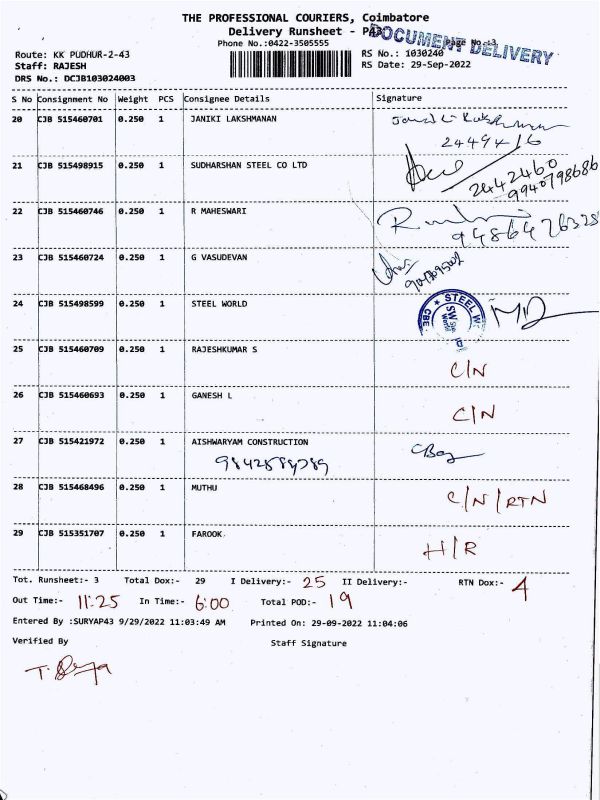 THE PROFESSIONAL COURIERS, Coimbatore
Delivery Runsheet - P43
DOCUMENT DELIVERY
Phone No.:0422-3505555
Page No.:3
Route: KK PUDHUR-2-43
RS No.: 1030240
Staff: RAJESH
RS Date: 29-Sep-2022
DRS No.: DCJB103024003
S No Consignment No Weight PCS Consignee Details Signature
20 CJB 515460701 0.250 1 JANIKI LAKSHMANAN
2449416
21 CJB 515498915 0.250 1 SUDHARSHAN STEEL CO LTD
2442460
9940798686
22 CJB 515460746 0.250 1 R MAHESWARI
23 CJB 515460724 0.250 1 G VASUDEVAN
24 CJB 515498599 0.250 1 STEEL WORLD
25 CJB 515460709 0.250 1 RAJESHKUMAR S C/N
26 CJB 515460693 0.250 1 GANESH L C/N
27 CJB 515421972 0.250 1 AISHWARYAM CONSTRUCTION
28 CJB 515468496 0.250 1 MUTHU C/N/RTN
29 CJB 515351707 0.250 1 FAROOK H/R
Tot. Runsheet:- 3 Total Dox:- 29 I Delivery:- 25 II Delivery:- RTN Dox:- 4
Out Time:- 11:25 In Time:- 6:00 Total POD:- 19
Entered By :SURYAP43 9/29/2022 11:03:49 AM Printed On: 29-09-2022 11:04:06
Verified By Staff Signature